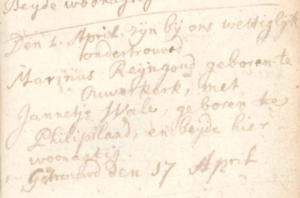 Beyde woonagtig
Den 2. April zijn bij ons wettiglijk
ondertrouwd
Marinus Reijngoud geboren te
Ouwerkerk, met
Jannetje Wale, geboren te
Philipilaad, en beyde hier
woonagtig
Getrouwd den 17 April